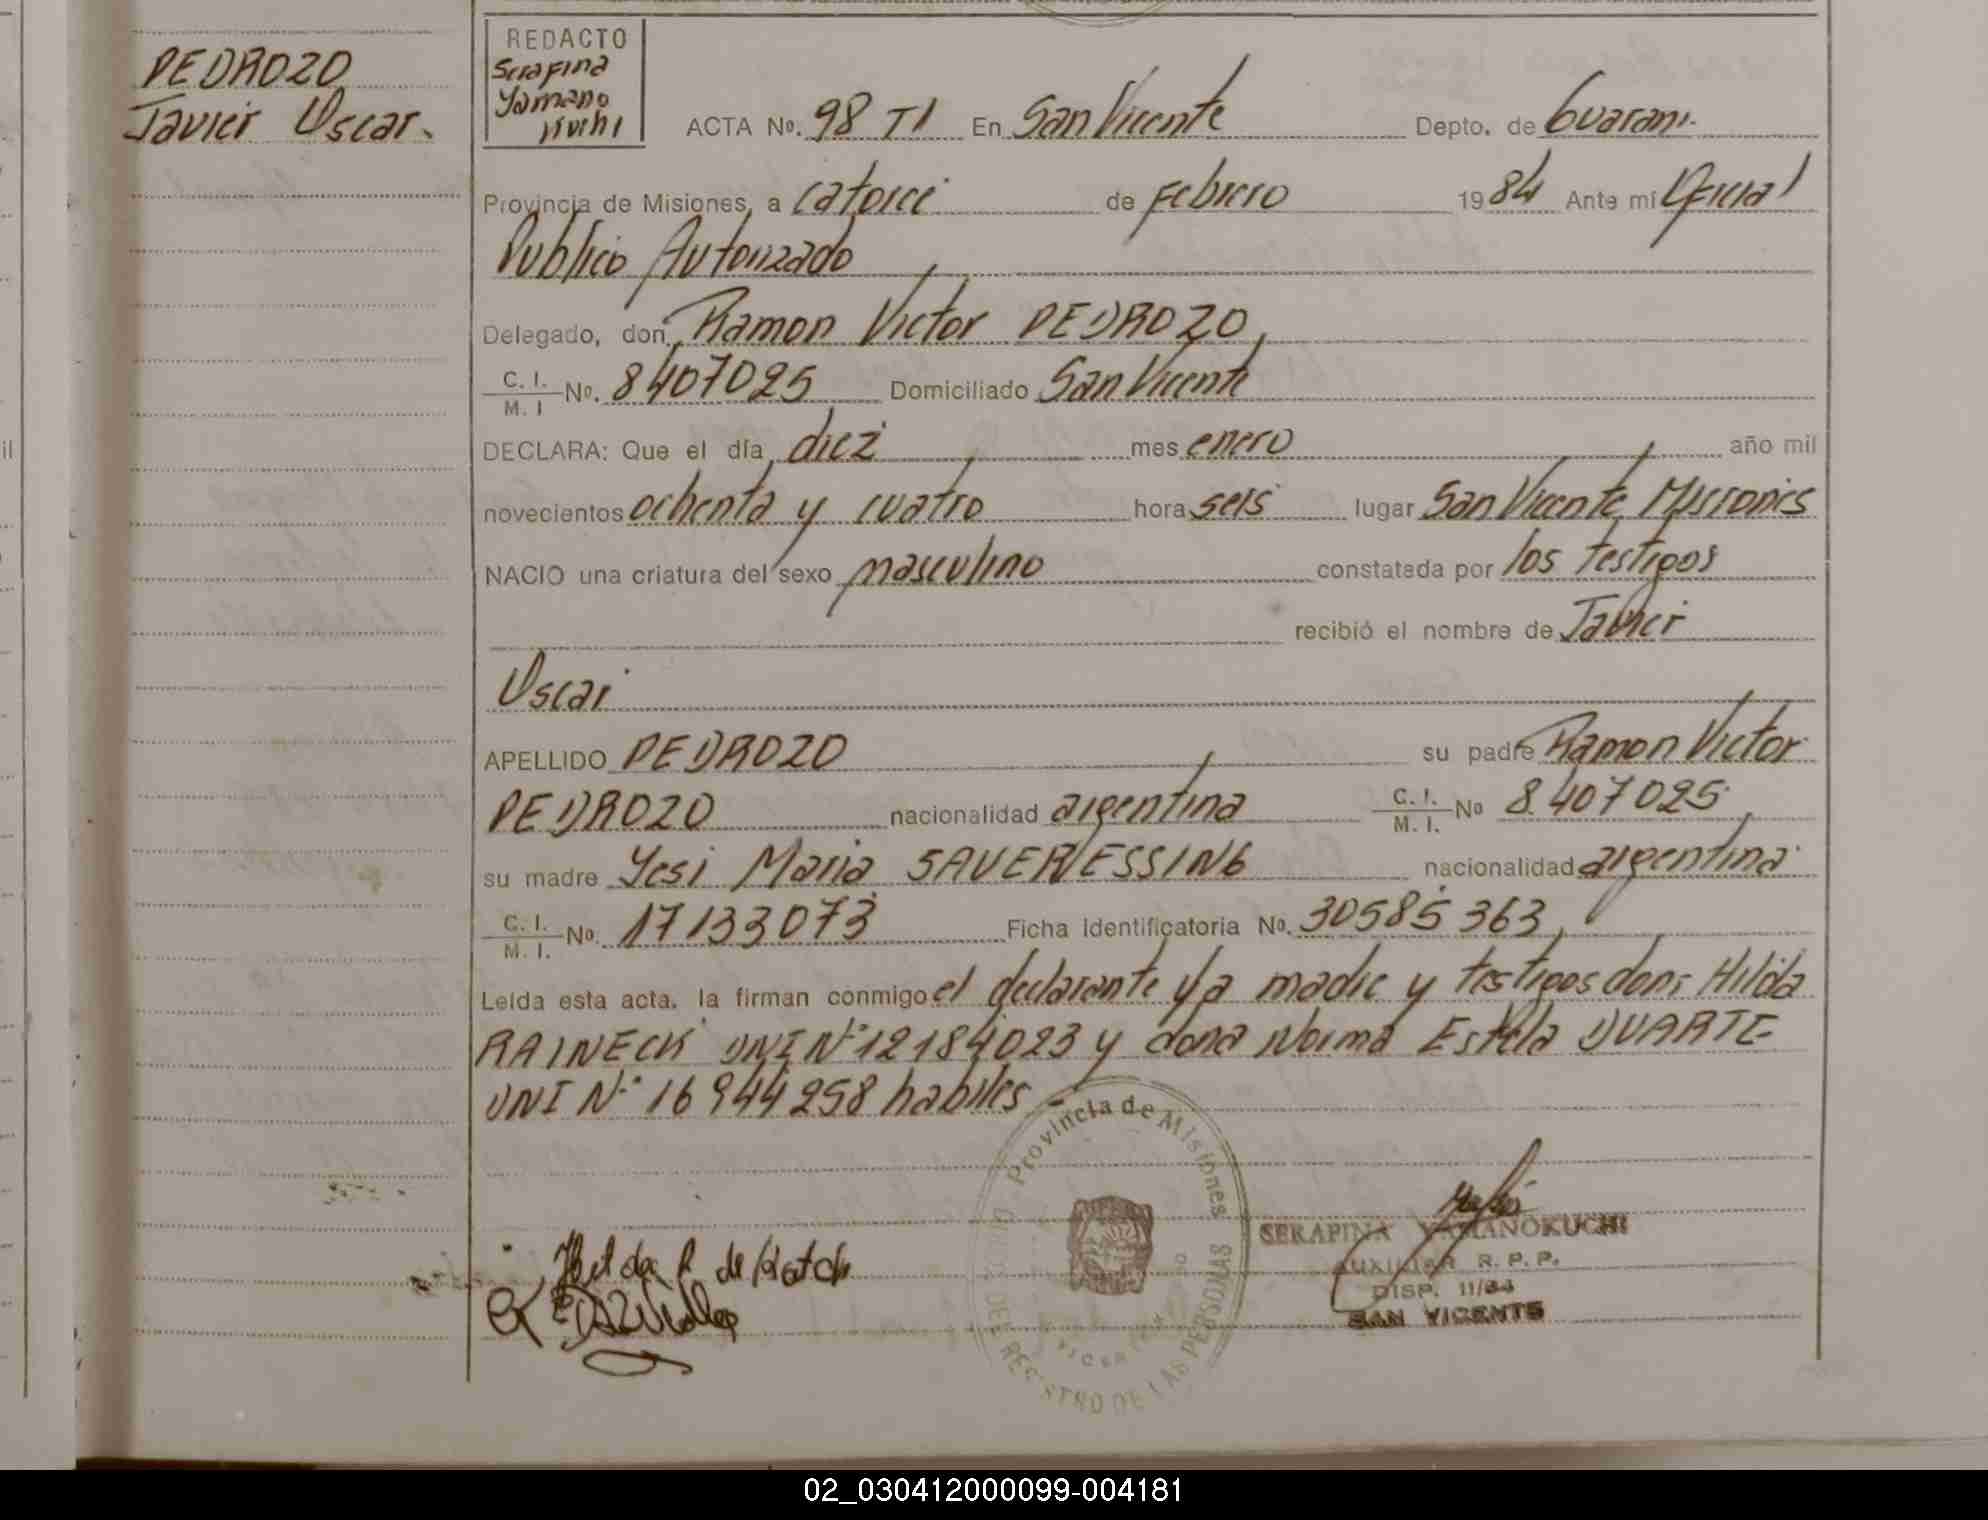 PEDROZO
Javier Oscar.
REDACTO
Serafina
Yamano
kuchi
ACTA No. 98 T1 En San Vicente Depto. de Guarani
Provincia de Misiones, a catorce de Febrero 1984 Ante mí Oficial
Publico Autorizado
Delegado, don Ramon Victor PEDROZO,
C. I. / M. I No. 8407025 Domiciliado San Vicente
DECLARA: Que el día diez mes enero año mil
novecientos ochenta y cuatro hora seis lugar San Vicente Misiones
NACIO una criatura del sexo masculino constatada por los testigos
recibió el nombre de Javier
Oscar
APELLIDO PEDROZO su padre Ramon Victor
PEDROZO nacionalidad argentina C. I. / M. I. No 8.407025,
su madre Yesi Maria SAUERESSING nacionalidad argentina
C. I. / M. I. No. 17133073 Ficha identificatoria No. 30585363,
Leída esta acta, la firman conmigo el declarante y la madre y testigos doña Hilda
RAINECK DNI Nº 12184023 y dona Norma Estela DUARTE
DNI Nº 16944258 habiles -
Provincia de Misiones
REGISTRO DE LAS PERSONAS
Hilda R de
SERAFINA YAMANOKUCHI
AUXILIAR R. P. P.
DISP. 11/84
SAN VICENTE
02_030412000099-004181